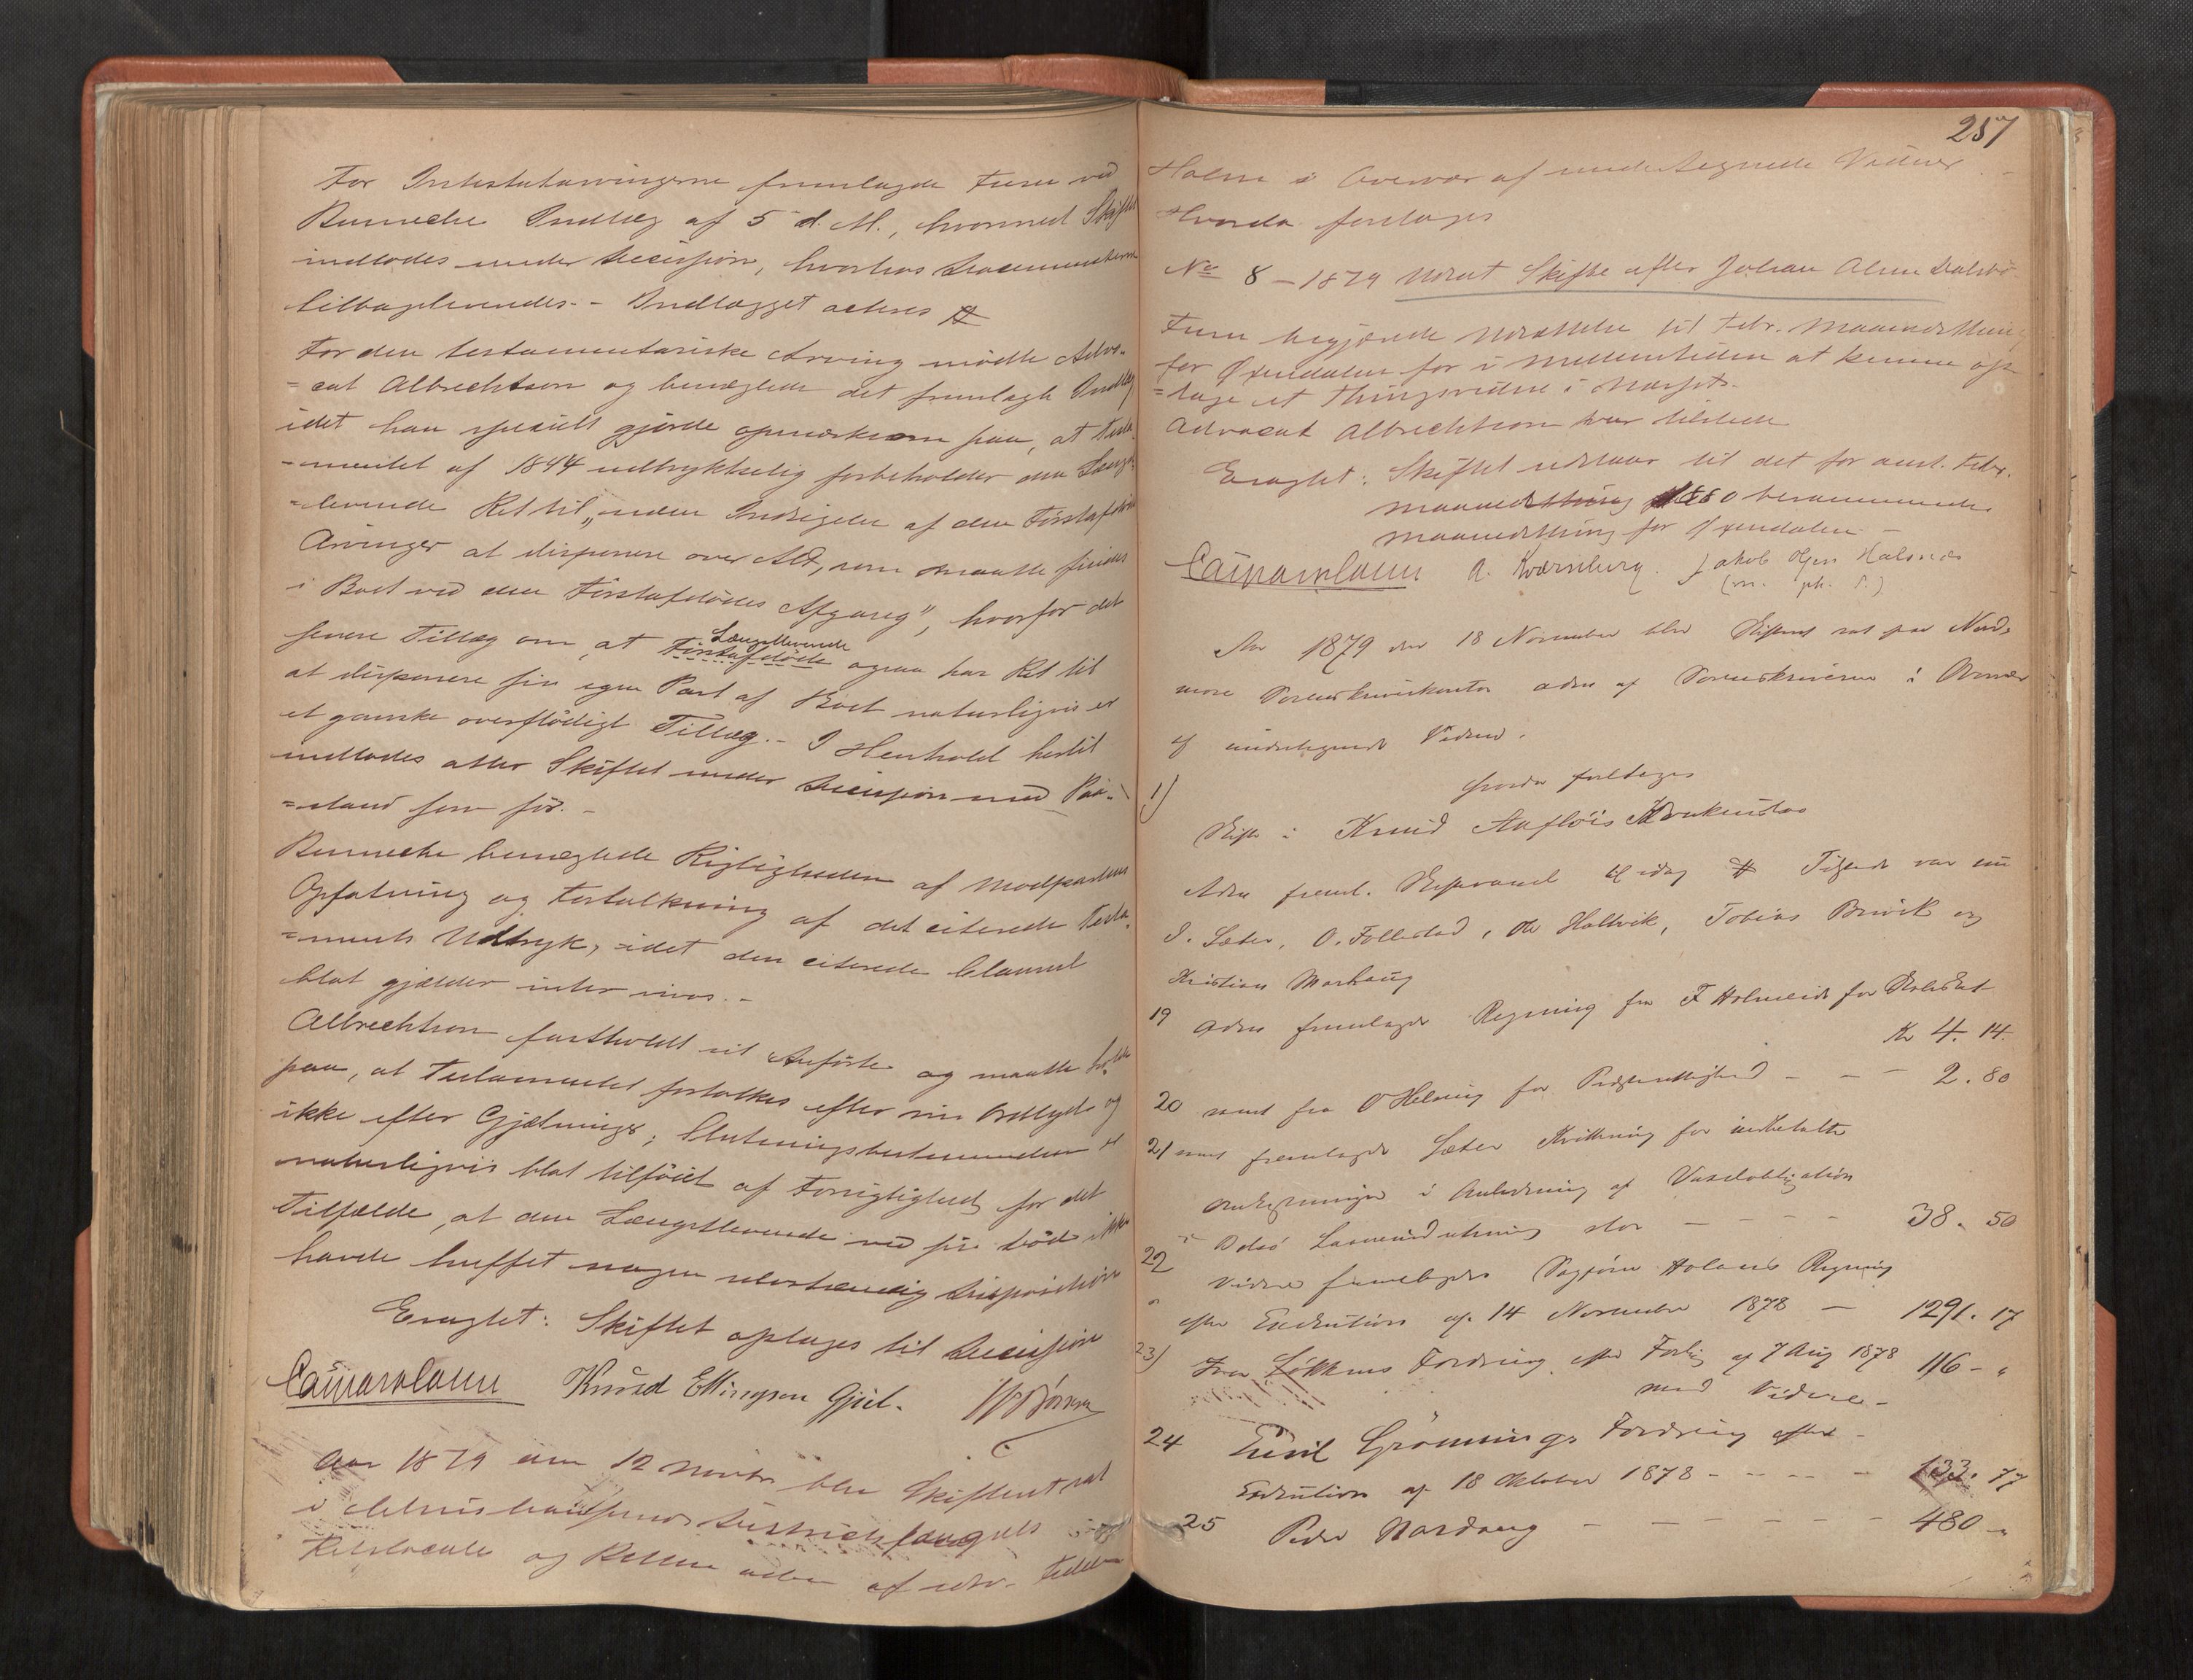 For Intestatarvingerne fremlagde Furu ved
Benneche Indlæg af 5 d. M., hvormed Skiftet
indlodes under Decission, hvorhos Documenterne
tilbageleveredes. - Indlægget acteres #
For den testamentariske Arving mødte Advo-
=cat Albrechtson og benægtede det fremlagte Indlæg
idet han specielt gjorde opmærksom paa, at Testa-
=mentet af 1844 udtrykkelig forbeholder den Længst-
=levende Ret til "uden Indsigelse af den Førstafdødes
Arvinger at disponere over Alt, som maatte findes
i Boet ved den Førstafdødes Afgang", hvorfor det
senere Tillæg om, at Førstafdøde Længstlevende ogsaa har Ret til
at disponere sin egen Part af Boet naturligvis er
et ganske overflødigt Tillæg. - I Henhold hertil
indlodes atter Skiftet under Decission med Paa-
=stand som før. -
Benneche benægtede Rigtigheden af Modpartens
Opfatning og Fortolkning af det citerede Testa-
=ments Udtryk, idet den citerede Clausul
blot gjælder inter vivos. -
Albrechtson fastholdt sit Anførte og maatte holde
paa, at Testamentet fortolkes efter sin Ordlyd og
ikke efter Gjætninger; Slutningsbestemmelsen er
naturligvis blot tilføiet af Forsigtighed for det
Tilfælde, at den Længstlevende ved sin Død ikke
havde truffet nogen selvstændig Disposition
Eragtet: Skiftet optages til Decission
Knud Ellingsen Gjül.
Aar 1879 den 12 Novbr blev Skifteret sat
i Christianssunds Districtsfængsels
Retslocale og Retten adm. af
257
Holm i Overvær af undertegnede Vidner
Hvorda foretoges
No 8 - 1879 Udsat Skifte efter Johan Olsen
Furu begjærede Udsættelse til Febr. Maanedsthing
for Øxendalen for i Mellemtiden at kunne op-
=tage et Thingsvidne i
Advocat Albrechtson var tilstede
Eragtet: Skiftet udstaar til det for anst. Febr.
maanedsthing 1880 berammende
maanedsthing for Øxendalen -
A. Kvernberg. Jakob Olsen Halsnes
(m. p. P.)
Aar 1879 den 18 November blev Skifteret sat paa Nord-
møre Sorenskriverkontor adm af Sorenskriveren i Overvær
af undertegnede Vidner.
hvorda foretoges
1)
Skifte i Knud
Adm freml. Tilstede var nu
S. Sæter, O. Follestad, Ole Hallvik, Tobias Brüvik og
Kristian Marhaug
19 Adm fremlagde Regning fra F Holmeide for Skoleskat
Kr 4. 14.
20 samt fra O Helsing for Præsterettighed - - - 2. 80
21 samt fremlagde Sæter Kvittering for indbetalte
Omkostninger i Anledning af Vaseobligation
i Laaneindretning stor - - - - 38. 50
22 Videre fremlagdes Regning
efter Exekution af 14 November 1878 - 1291. 17
23) Iver Løkkens Fordring efter Forlig af 7 Aug 1878 116 - "
med Videre -
24 Emil Grønnings Fordring efter -
Exekution af 18 Oktober 1878 - - - - - 133. 77
25 Peder Nordvang - - - - - - - 480 - "